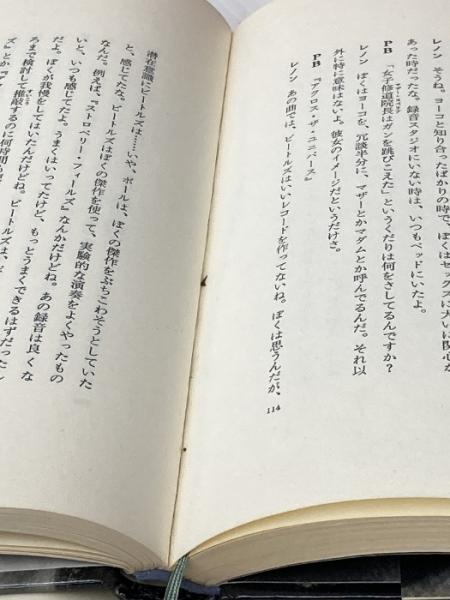 レノン そうね。ヨーコと知り合ったばかりの時で、ぼくはセックスに大いに関心が
あった時だったな。録音スタジオにいない時は、いつもベッドにいたよ。
PB 「女子修道院長はガンを跳びこえた」というくだりは何をさしてるんですか？
レノン ぼくはヨーコを、冗談半分に、マザーとかマダムとか呼んでるんだ。それ以
外に特に意味はないよ。彼女のイメージだというだけさ。
PB 『アクロス・ザ・ユニバース』
レノン あの曲では、ビートルズはいいレコードを作ってないね。ぼくは思うんだが、
114
潜在意識にビートルズは……いや、ポールは、ぼくの傑作をぶちこわそうとしていた
と、感じてたな。ビートルズはぼくの傑作を使って、実験的な演奏をよくやったもの
なんだ。例えば、『ストロベリー・フィールズ』なんかだけどね。あの録音は良くな
いと、いつも感じてたよ。うまくはいってたけど、もっとうまくできるはずだったん
だよ。ぼくが我慢をしてはいたんだけどね。ビートルズは、
ろまで検討して推敲するのに何時間も
ズ』とか『ア